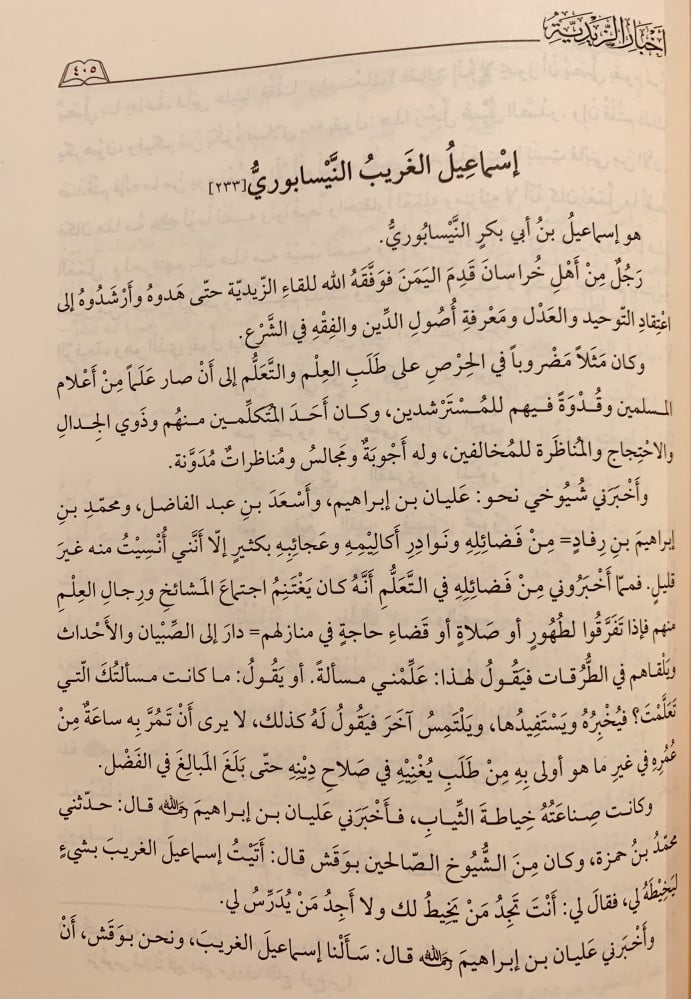 أخبار الزيدية
٤٠٥
إسْماعِيلُ الغَريبُ النَّيْسابوريُّ[٢٣٣]
هو إسماعيلُ بنُ أبي بكرٍ النَّيْسابُوريُّ.
رَجُلٌ مِنْ أَهْلِ خُراسانَ قَدِمَ اليَمَنَ فَوَفَّقَهُ الله للقاءِ الزّيديّة حتّى هَدوهُ وأَرْشَدُوهُ إلى
اعْتِقادِ التّوحيد والعَدْل ومَعْرفةِ أُصُولِ الدِّين والفِقْهِ في الشَّرْع.
وكان مَثَلاً مَضْروباً في الحِرْصِ على طَلَبِ العِلْم والتَّعَلُّم إلى أَنْ صار عَلَماً مِنْ أَعْلام
المسلمين وقُدْوَةً فيهم للمُسْتَرْشدين، وكـان أَحَدَ المُتَكلِّمـين مـنهُم وذَوي الجِـدالِ
والاحْتِجاج والمُناظَرة للمُخالفين، وله أَجْوِبَةٌ ومَجالسُ ومُناظراتٌ مُدَوَّنة.
وأَخْبَرَني شُيُوخي نحـو: عَليان بن إبراهيم، وأَسْعَدَ بنِ عبد الفاضل، ومحمّدِ بنِ
إبراهيمَ بنِ رِفادٍ= مِـنْ فَضائِلِهِ ونَـوادِرِ أَكالِيْمِـهِ وعَجائِبِـهِ بكثيرٍ إلّا أَنَّني أُنْسِيْتُ منه غيرَ
قليلٍ. فممّا أَخْبَرُوني مِـنْ فَضائِلِهِ في التَّعَلُّمِ أَنَّهُ كـان يَغْتَنِمُ اجتماعَ المَشائخِ ورِجالِ العِلْمِ
منهم فإذا تَفَرَّقُوا لطُهُورٍ أو صَلاةٍ أو قَضاءِ حاجةٍ في منازلهم= دارَ إلى الصِّبْيان والأَحْداث
ويَلْقاهم في الطُّرُقات فيَقُولُ لهذا: عَلِّمْني مسألةً. أو يَقُولُ: ما كانت مسألتُكَ الّتي
تَعَلَّمْتَ؟ فيُخْبِرُهُ ويَسْتَفِيدُها، ويَلْتَمِسُ آخَرَ فيَقُولُ لَهُ كذلك، لا يرى أَنْ تَمُرَّ بِه ساعَةٌ مِنْ
عُمُرِهِ في غيرِ ما هو أولى بِهِ مِنْ طَلَبِ يُغْنِيْهِ في صَلاحِ دِيْنِهِ حتّى بَلَغَ المَبالِغَ في الفَضْل.
وكانت صِناعَتُهُ خِياطةَ الثِّيابِ، فـأَخْبَرَني عَليان بن إبـراهيمَ رحمه الله قال: حدّثني
محمّدُ بنُ حمزة، وكان مِنَ الشُّيُوخ الصّالحين بوَقَش قال: أَتَيْتُ إسماعيلَ الغريبَ بشيءٍ
ليَخِيْطَهُ لي، فقالَ لي: أَنْتَ تَجِدُ مَنْ يَخِيطُ لك ولا أَجِدُ مَنْ يُدَرِّسُ لي.
وأَخْبَرني عَليان بن إبراهيمَ رحمه الله قال: سَأَلْنا إسماعيلَ الغريبَ، ونحن بوَقَش، أَنْ